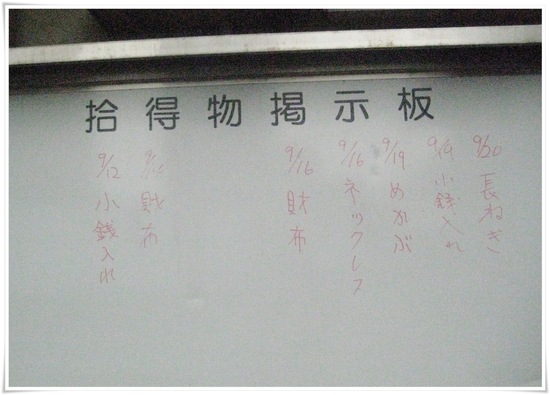 拾得物掲示板
9/20 長ねぎ
9/19 小銭入れ
9/19 めかぶ
9/16 ネックレス
9/16 財布
財布
9/12 小銭入れ